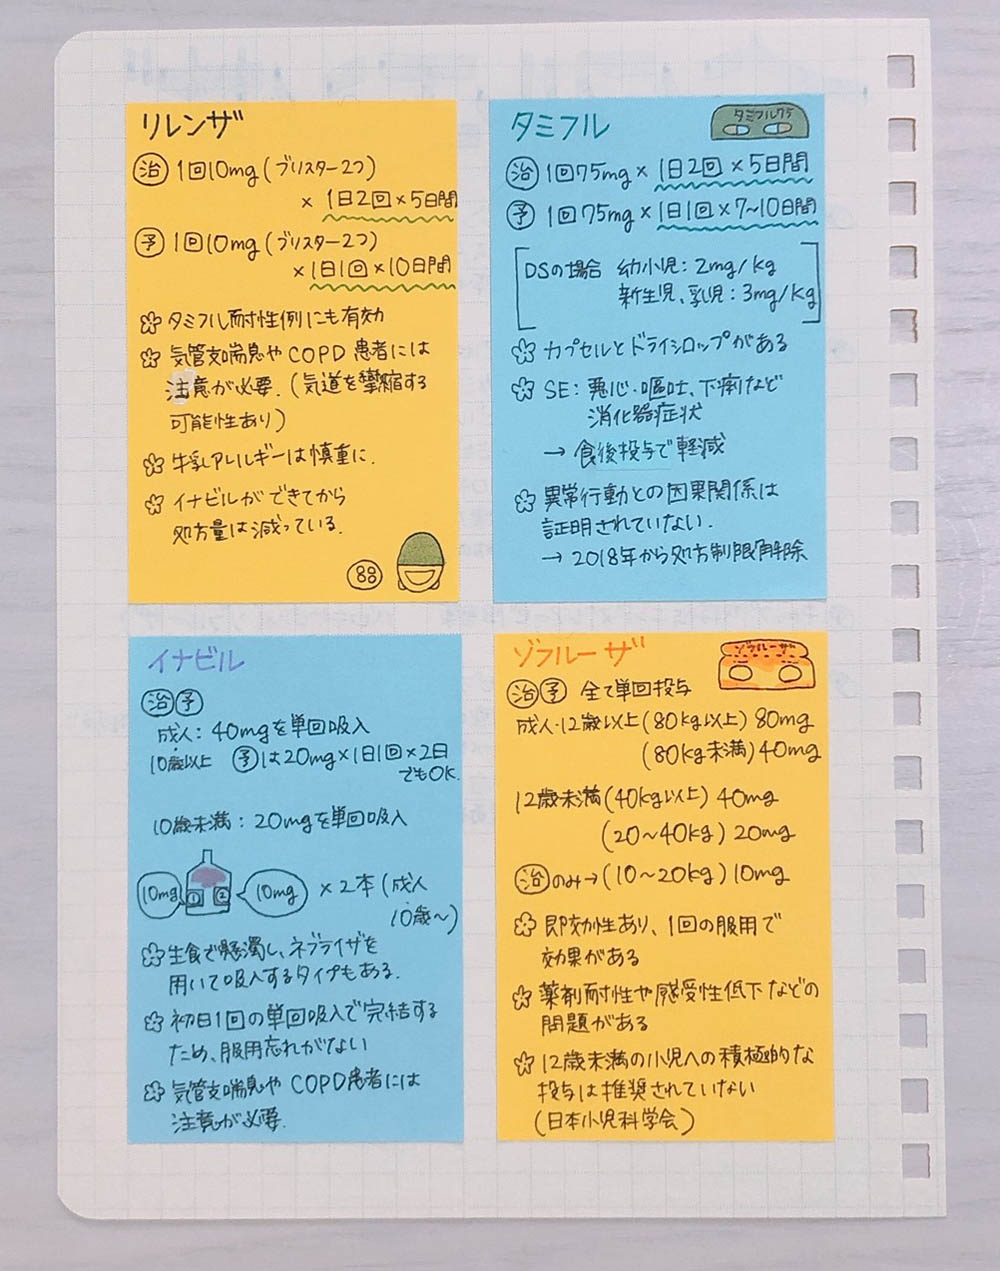 リレンザ
治 1回10mg(ブリスター2つ)
× 1日2回×5日間
予 1回10mg(ブリスター2つ)
×1日1回×10日間
タミフル耐性例にも有効
気管支喘息やCOPD患者には
注意が必要.(気道を攣縮する
可能性あり)
牛乳アレルギーは慎重に.
イナビルができてから
処方量は減っている.
タミフル
タミフル75
治 1回75mg×1日2回×5日間
予 1回75mg×1日1回×7~10日間
DSの場合 幼小児:2mg/kg
新生児、乳児:3mg/kg
カプセルとドライシロップがある
SE:悪心・嘔吐、下痢など
消化器症状
→ 食後投与で軽減
異常行動との因果関係は
証明されていない.
→ 2018年から処方制限解除
イナビル
治 予
成人:40mgを単回吸入
10歳以上 予は20mg×1日1回×2日
でもOK.
10歳未満:20mgを単回吸入
10mg ① ② 10mg ×2本(成人
10歳~)
生食で懸濁し、ネブライザを
用いて吸入するタイプもある.
初日1回の単回吸入で完結する
ため、服用忘れがない
気管支喘息やCOPD患者には
注意が必要.
ゾフルーザ
ゾフルーザ
治 予 全て単回投与
成人・12歳以上(80kg以上)80mg
(80kg未満)40mg
12歳未満(40kg以上)40mg
(20~40kg)20mg
治のみ→(10~20kg)10mg
即効性あり、1回の服用で
効果がある
薬剤耐性や感受性低下などの
問題がある
12歳未満の小児への積極的な
投与は推奨されていない
(日本小児科学会)